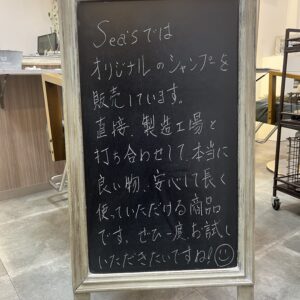 Sea'sでは
オリジナルのシャンプーを
販売しています。
直接、製造工場と
打ち合わせして、本当に
良い物、安心して長く
使っていただける商品
です。ぜひ一度お試し
いただきたいですね!